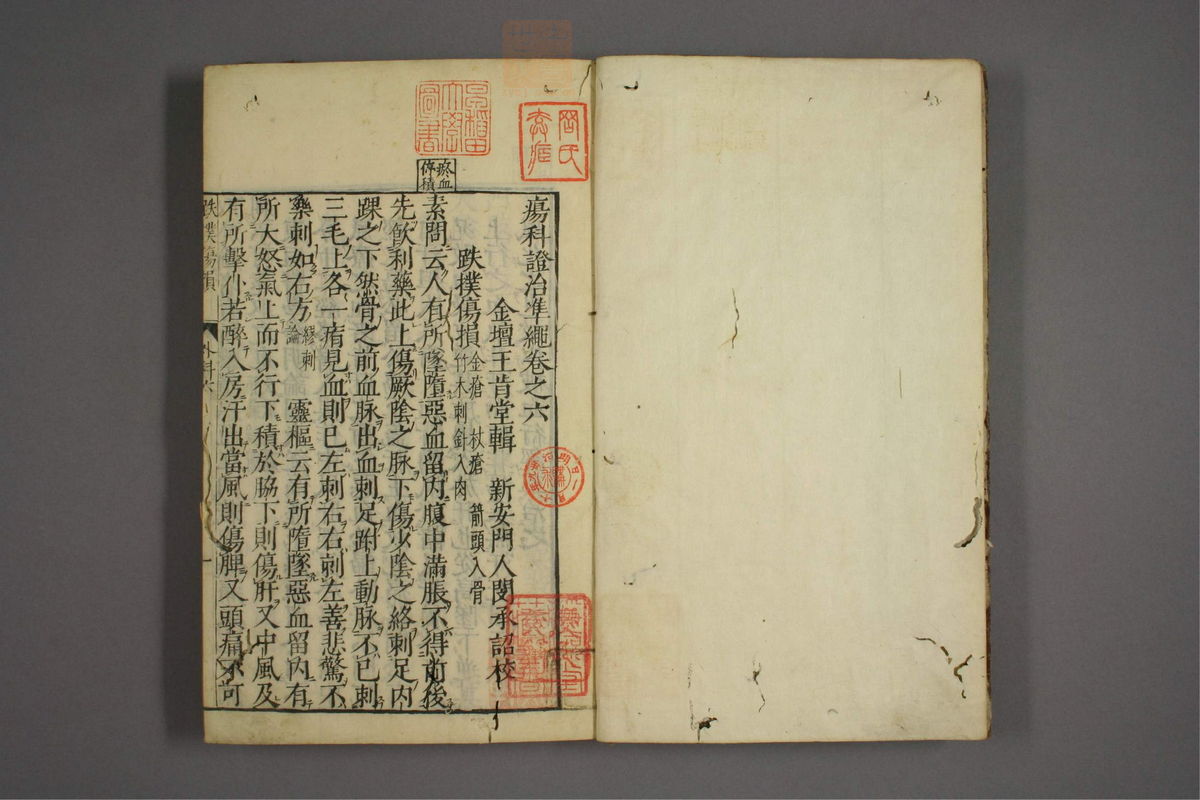 瘍科證治準繩卷之六
金壇王肯堂輯 新安門人閔承詔校
跌撲傷損 金瘡 杖瘡 箭頭入骨 竹木刺針入肉
瘀血停積
素問云人有所墜墮惡血留內腹中滿脹不得前後
先飲利藥此上傷厥陰之脉下傷少陰之絡刺足內
踝之下然骨之前血脉出血刺足跗上動脉不已刺
三毛上各一痏見血則已左刺右右刺左善悲驚不
樂刺如右方 繆刺論 靈樞云有所墮墜惡血留內有
所大怒氣上而不行下積於脇下則傷肝又中風及
有所擊仆若醉入房汗出當風則傷脾又頭痛不可
跌撲傷損 外科六 一
早稲田大學圖書